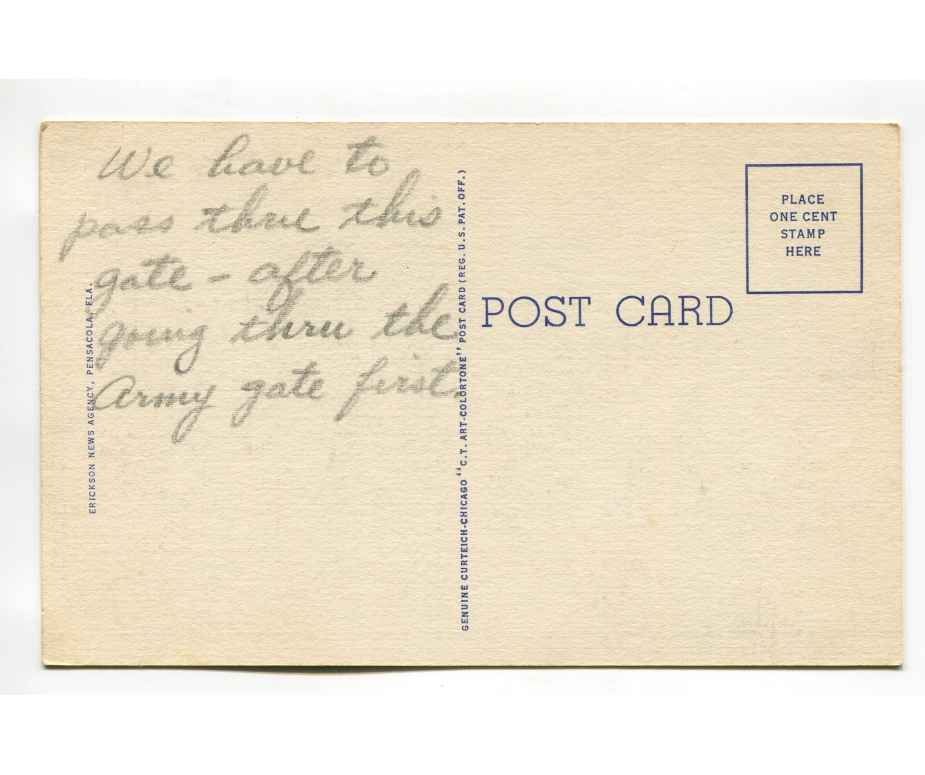 We have to
pass thru this
gate – after
going thru the
Army gate first.
ERICKSON NEWS AGENCY, PENSACOLA, FLA.
GENUINE CURTEICH-CHICAGO "C.T. ART-COLORTONE" POST CARD (REG. U.S. PAT. OFF.)
POST CARD
PLACE
ONE CENT
STAMP
HERE